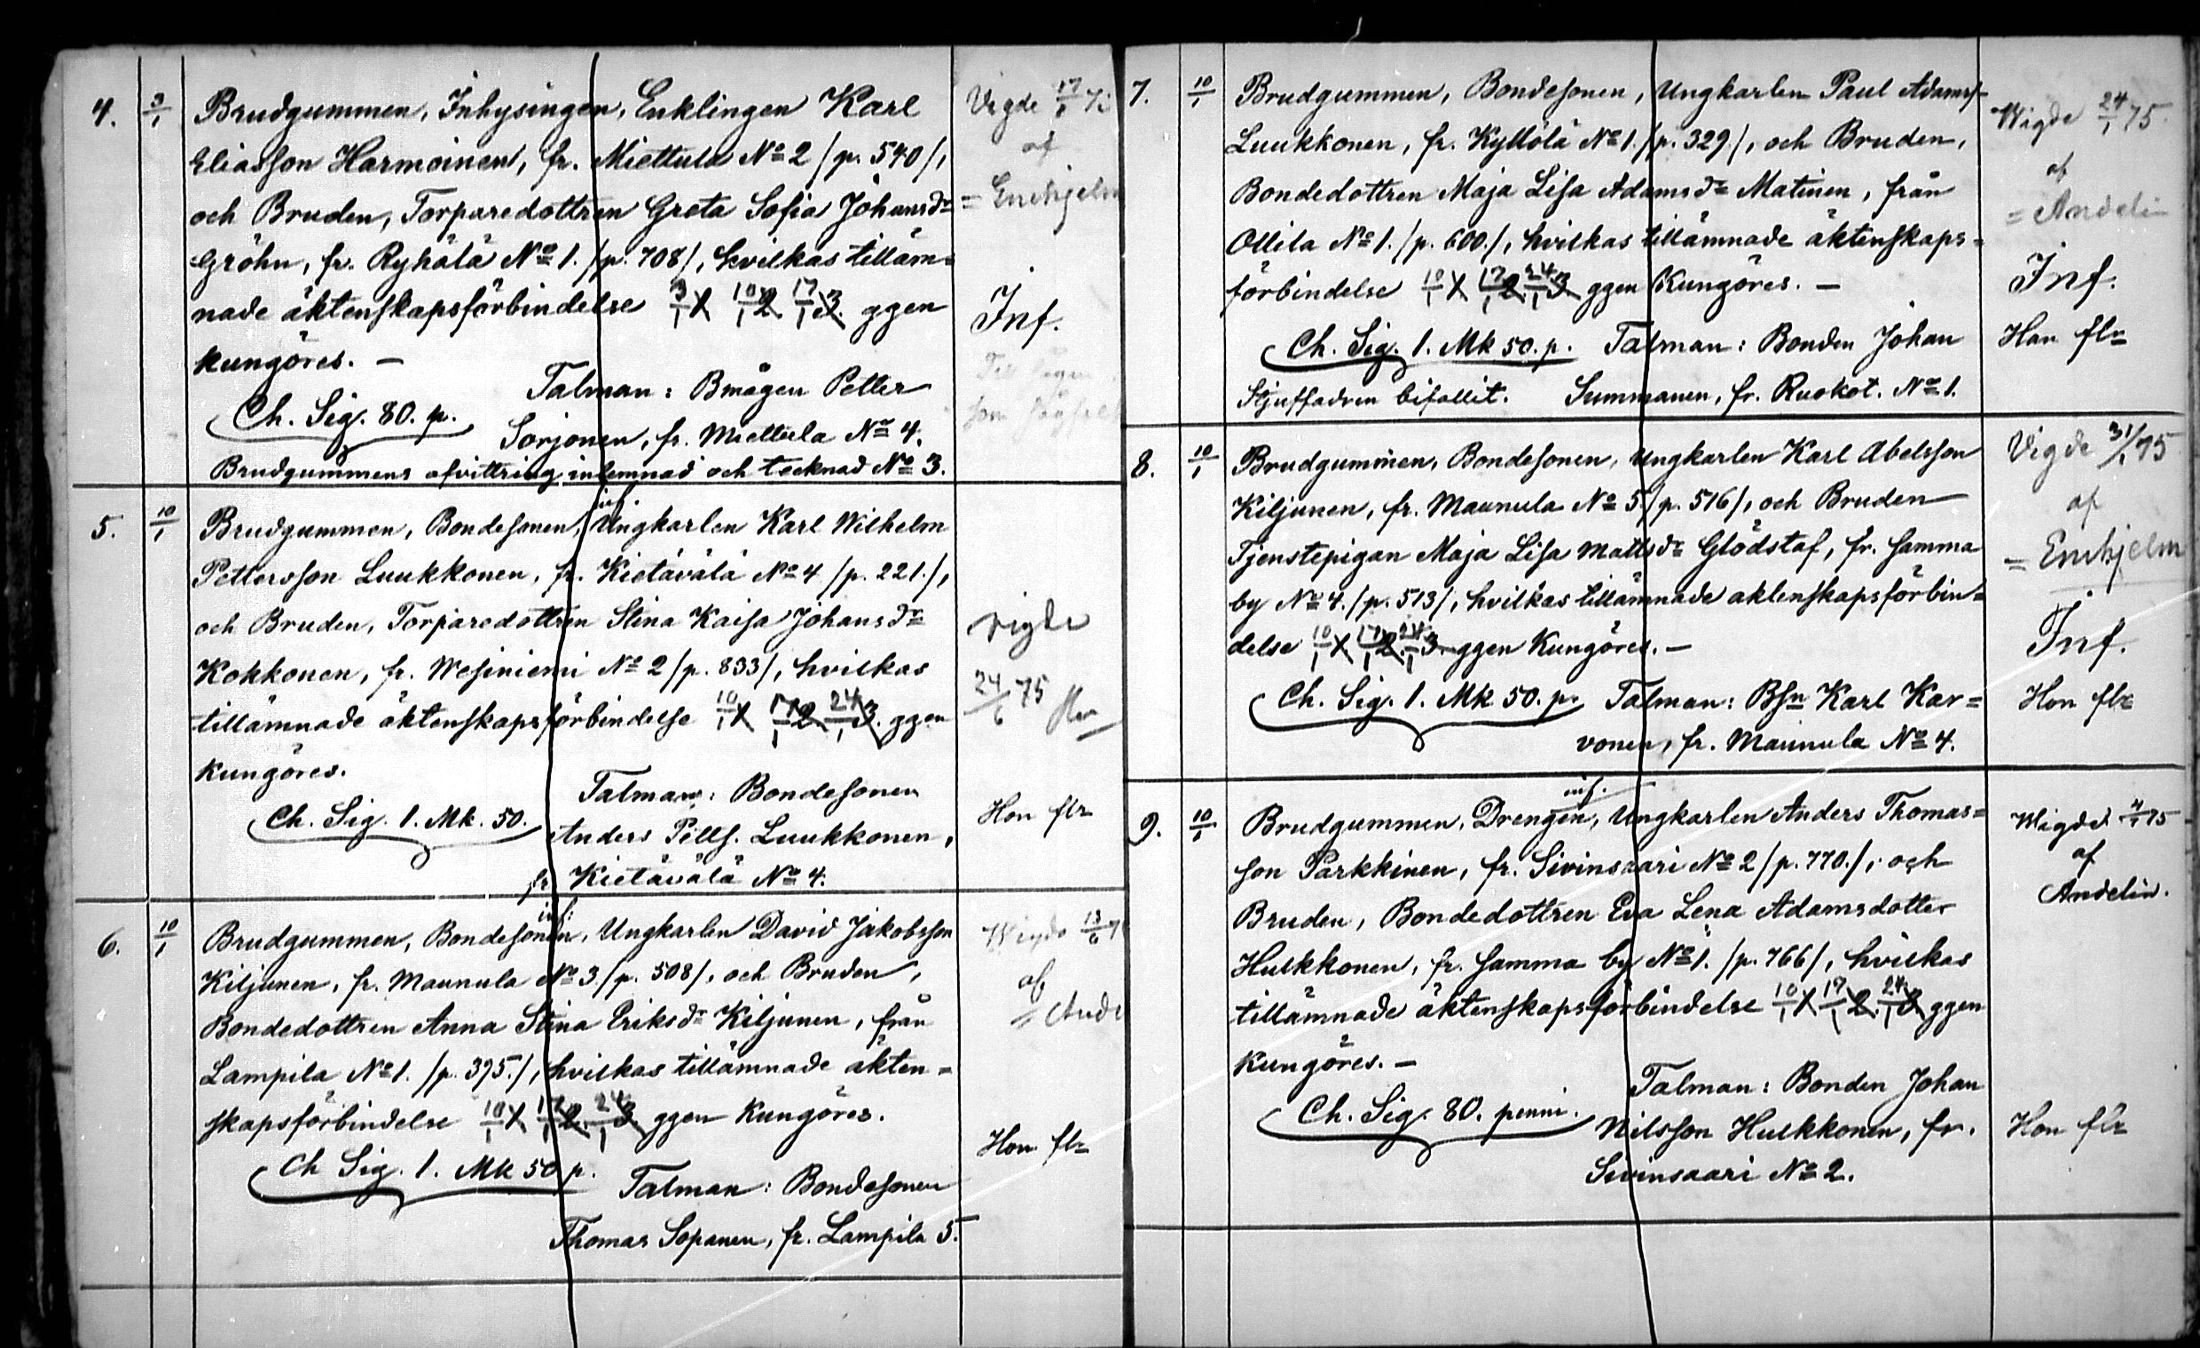 4. 3/1 Brudgummen, Inhysingen, Enklingen Karl
Eliasson Harmoinen, fr. Miettula No 2 /p. 540/,
och Bruden, Torparedottren Greta Sofia Johansdr
Gröhn, fr. Ryhälä No 1. /p. 708/, hvilkas tilläm=
nade äktenskapsförbindelse 3/1 1 10/1 2 17/1 3. ggen
kungöres. —
Talman: Bmågen Petter
Ch. Sig. 80. p.
Sorjonen, fr. Miettula No 4.
Brudgummens afvittring inlemnad och tecknad No 3.
Vigde 17/
af
= Enehjelm
Inf.
5. 10/1 Brudgummen, Bondesonen, inf. Ungkarlen Karl Wilhelm
Pettersson Luukkonen, fr. Kietävälä No 4 /p. 221./,
och Bruden, Torparedottren Stina Kaisa Johansdr
Kokkonen, fr. Wesiniemi No 2 /p. 833/, hvilkas
tillämnade äktenskapsförbindelse 10/1 1 17/1 2. 24/1 3. ggen
kungöres.
Talman: Bondesonen
Ch. Sig. 1. Mk. 50.
Anders Petts. Luukkonen,
fr. Kietävälä No 4.
vigde
24/6 75
Hon flr
6. 10/1 Brudgummen, Bondesonen, inf. Ungkarlen David Jakobsson
Kiljunen, fr. Maunula No 3 /p. 508/, och Bruden,
Bondedottren Anna Stina Eriksdr Kiljunen, från
Lampila No 1. /p. 395./, hvilkas tillämnade äkten=
skapsförbindelse 10/1 1 17/1 2. 24/1 3 ggen Kungöres.
Ch Sig. 1. Mk 50 p.
Talman: Bondesonen
Thomas Sopanen, fr. Lampila 5.
Wigde 13/6
af
= Ande
Hon flr
7. 10/1 Brudgummen, Bondesonen, Ungkarlen Paul Adamss
Luukkonen, fr. Kyllölä No 1. /p. 329/, och Bruden,
Bondedottren Maja Lisa Adamsdr Matinen, från
Ollila No 1. /p. 600./, hvilkas tillämnade äktenskaps=
förbindelse 10/1 1 17/1 2. 24/1 3 ggen Kungöres. —
Ch. Sig. 1. Mk 50. p. Talman: Bonden Johan
Stjuffadren bifallit. Summanen, fr. Ruokot. No 1.
Wigde 24/1 75.
af
= Andelin
Inf.
Hon flr
8. 10/1 Brudgummen, Bondesonen, Ungkarlen Karl Abelsson
Kiljunen, fr. Maunula No 5 /p. 516/, och Bruden
Tjenstepigan Maja Lisa Mattsdr Glödstaf, fr. samma
by No 4. /p. 513/, hvilkas tillämnade äktenskapsförbin=
delse 10/1 1 17/1 2. 24/1 3 ggen Kungöres. —
Ch. Sig. 1. Mk 50. p. Talman: Bsn Karl Kar=
vonen, fr. Maunula No 4.
Vigde 31/1 75
af
= Enehjelm
Inf.
Hon flr
9. 10/1 Brudgummen, Drengen, inf. Ungkarlen Anders Thomas=
son Parkkinen, fr. Sivinsaari No 2 /p. 770./, och
Bruden, Bondedottren Eva Lena Adamsdotter
Hulkkonen, fr. samma by No 1. /p. 766/, hvilkas
tillämnade äktenskapsförbindelse 10/1 1 17/1 2. 24/1 3 ggen
kungöres. —
Talman: Bonden Johan
Ch. Sig. 80. penni.
Nilsson Hulkkonen, fr.
Sivinsaari No 2.
Wigde 75
af
Andelin.
Hon flr